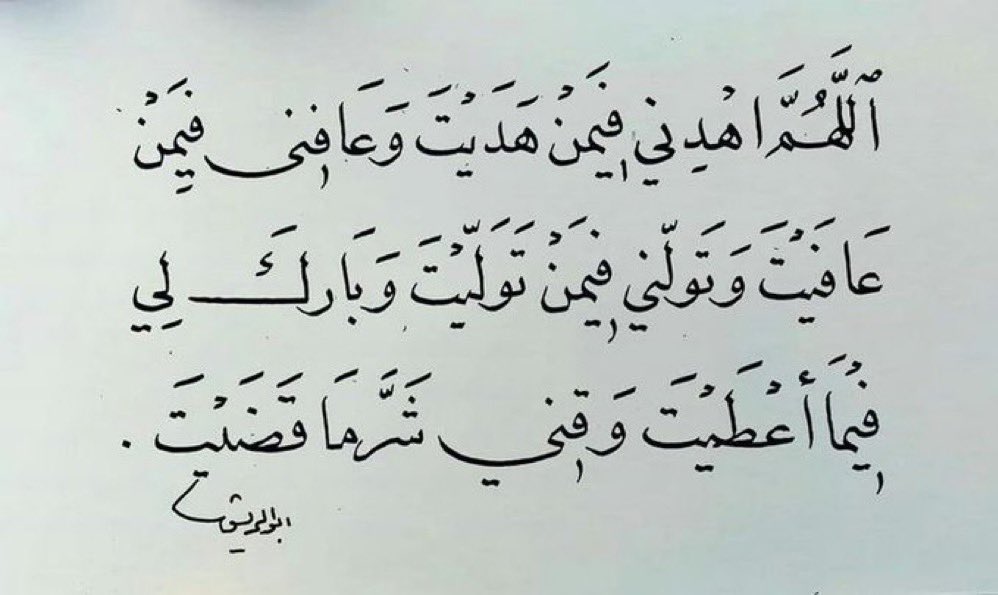 ٱللَّهُمَّ اهْدِنِي فِيمَنْ هَدَيْتَ وَعَافِنِي فِيمَنْ
عَافَيْتَ وَتَوَلَّنِي فِيمَنْ تَوَلَّيْتَ وَبَارِكْ لِي
فِيمَا أَعْطَيْتَ وَقِنِي شَرَّ مَا قَضَيْتَ .